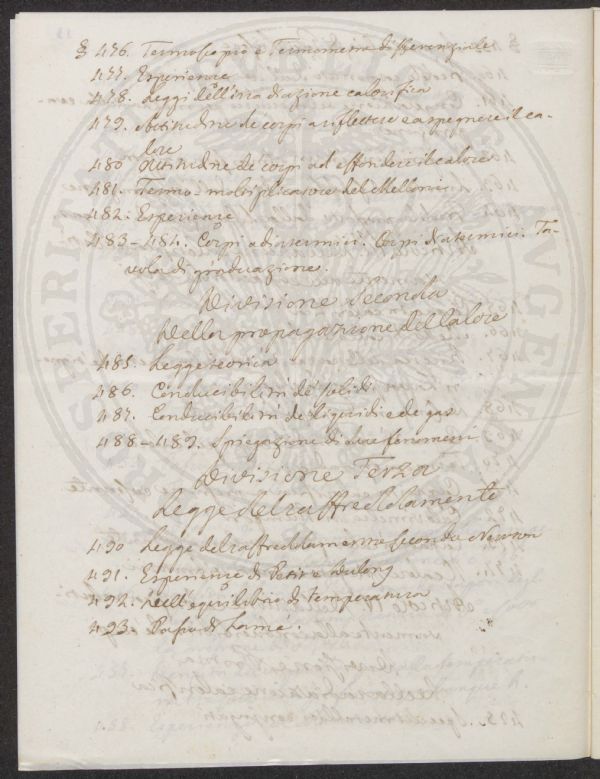 § 476. Termoscopio e Termometro differenziale
477. Esperienze
478. Leggi dell'irradiazione calorifica
479. Attitudine de' corpi a riflettere e a spegnere il ca-
lore
480 Attitudine de' corpi ad effondere il calore
481. Termo-moltiplicatore del Melloni
482. Esperienze
483-484. Corpi adiatermici. Corpi diatermici. Ta-
vola di graduazione.
Divisione Seconda
Della propagazione del Calore
485. Legge teorica
486. Conducibilità de' solidi
487. Conducibilità de' liquidi e de' gas
488-489. Spiegazione di due fenomeni
Divisione Terza
Legge del raffreddamento
490 Legge del raffreddamento secondo Newton
491. Esperienze di Petit e Dulong
492. Dell'equilibrio di temperatura
493. di Lamé.